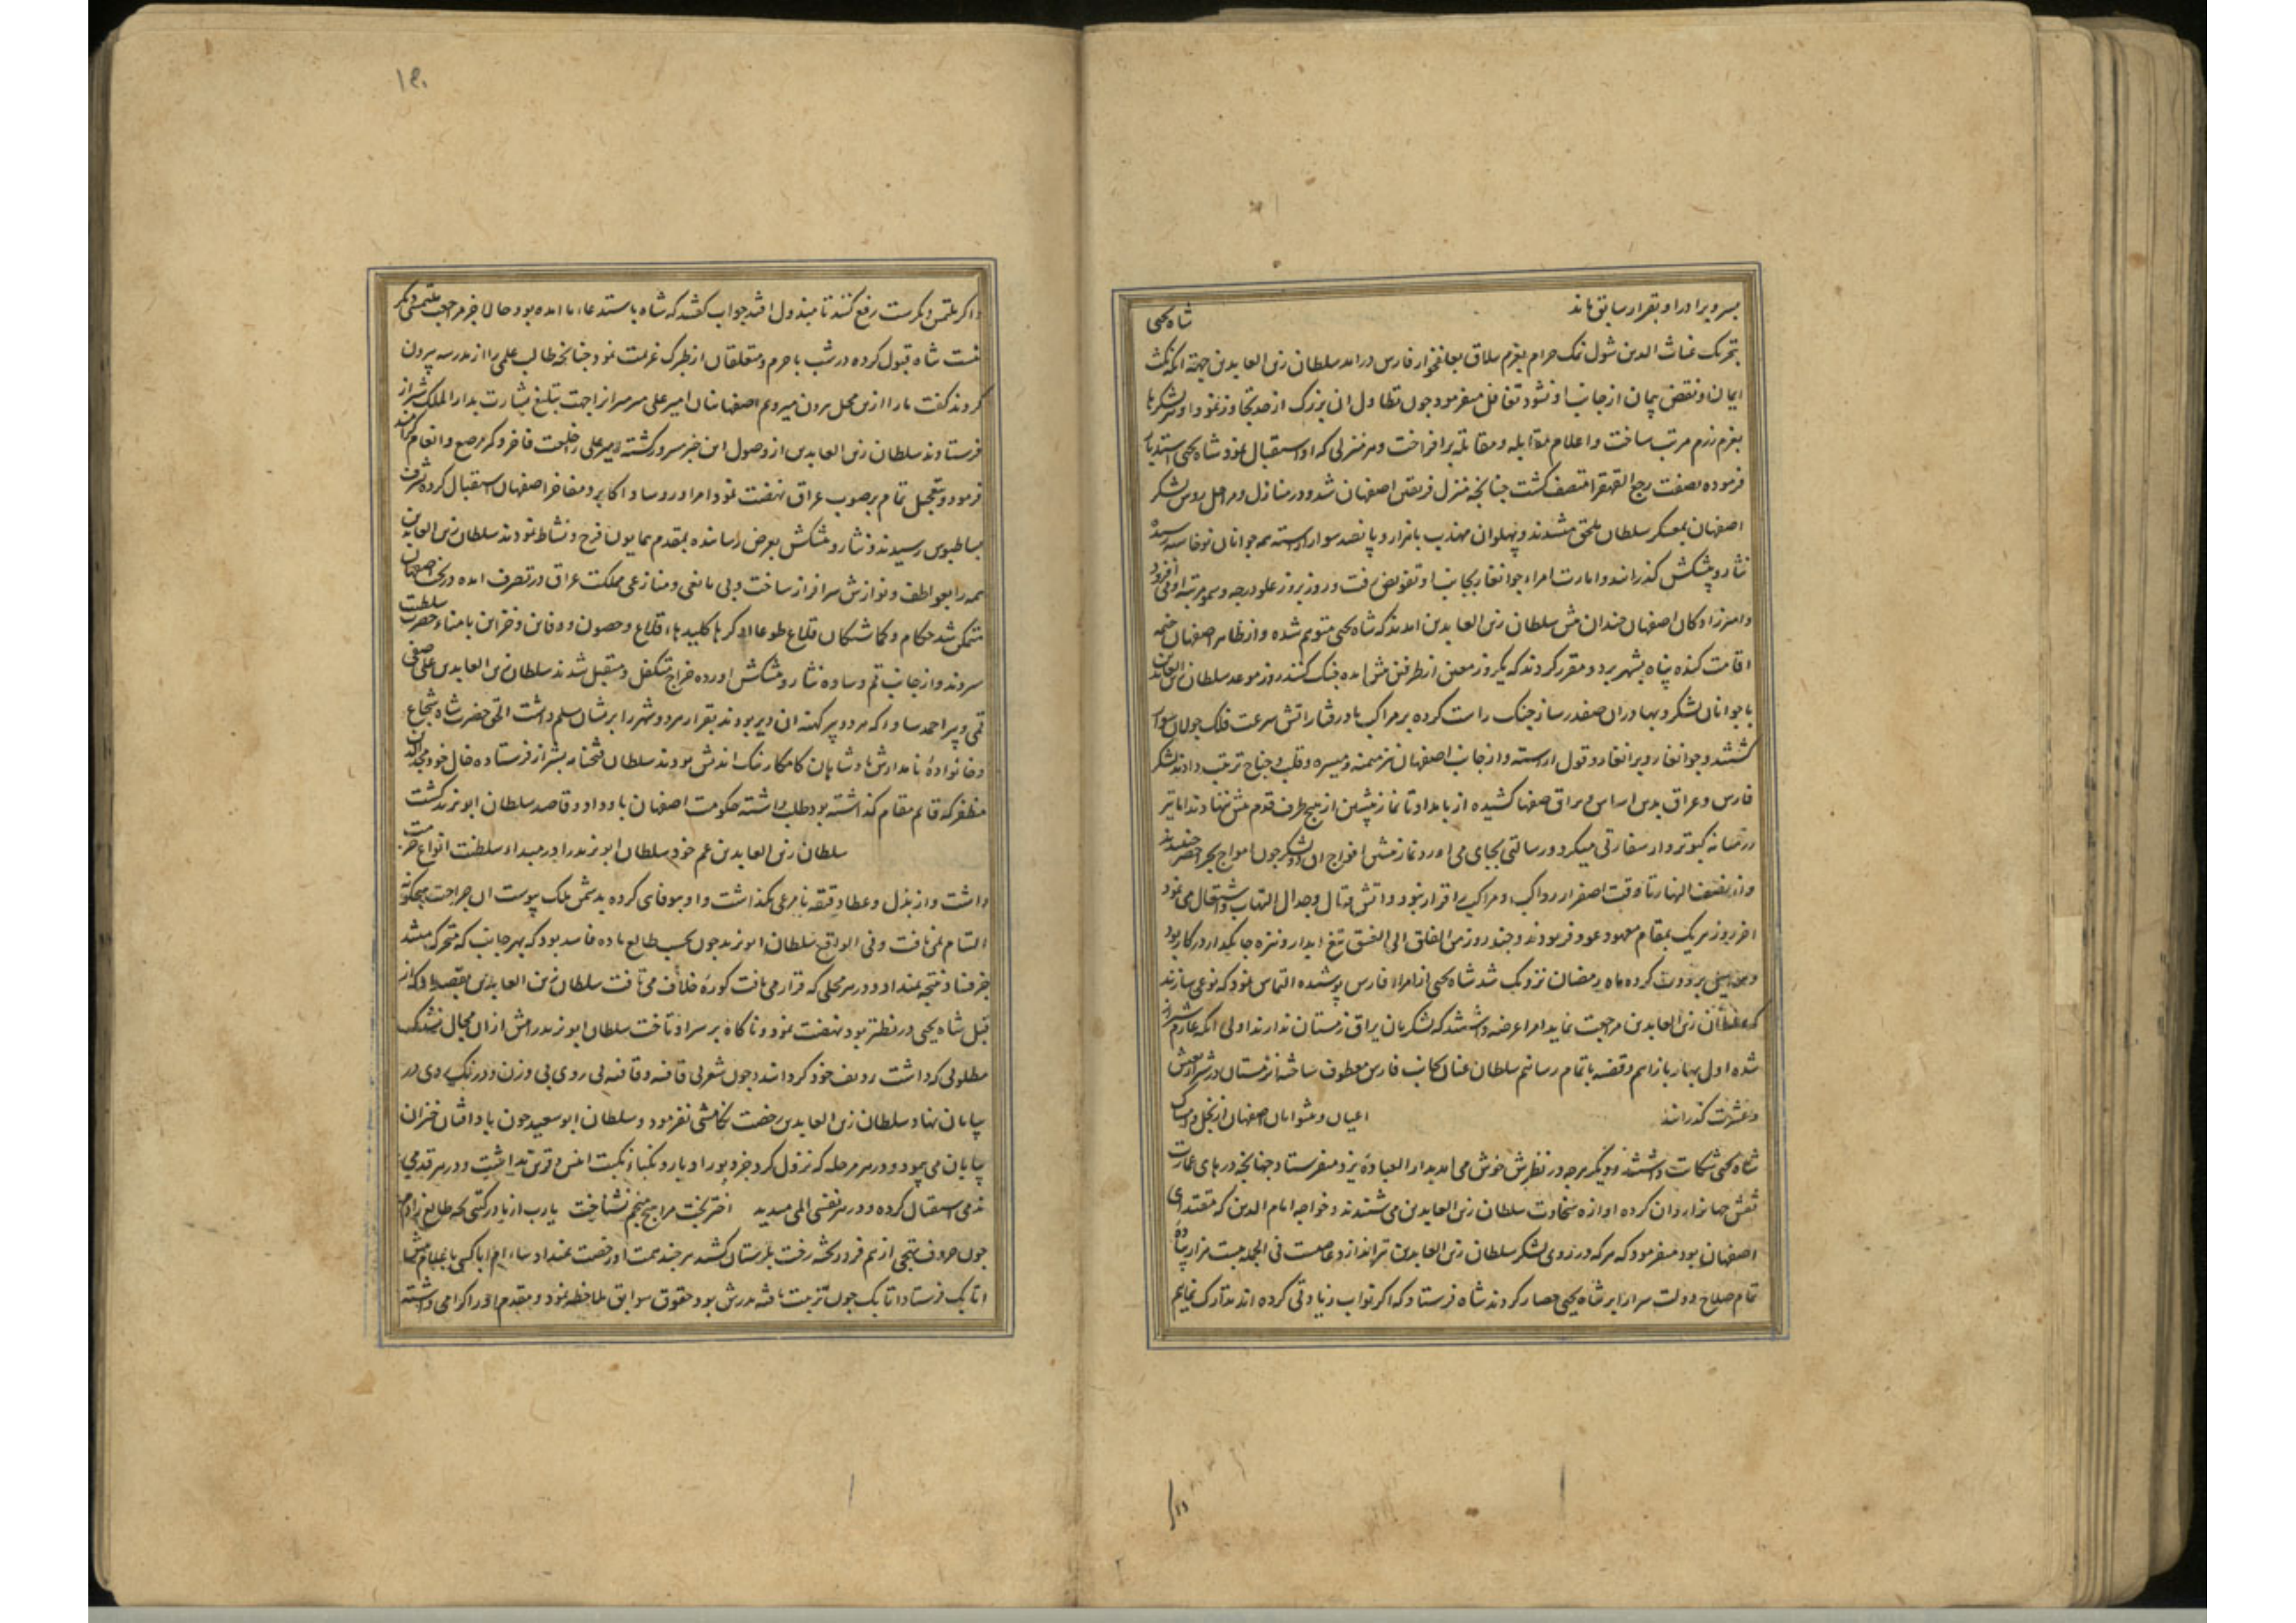 میرود برادر او بقرار سابق ماند
شاه یحیی
بتحریک غیاث الدین شول نمک حرام بعزم در آمد سلطان زین العابدین جهة آنکه نکث
ایمان و نقض پیمان از جانب او نشود تغافل میفرمود چون تطاول آن بزرگ از حد تجاوز نمود او نیز لشکرها
بعزم رزم مرتب ساخت و اعلام مقابله و مقاتله برافراخت و هر منزلی که او استقبال نمود شاه یحیی استدبار
فرموده بصفت رجع القهقرا متصف کشت چنانچه منزل فریقین اصفهان شد و در منازل و مراحل لشکر
اصفهان بمعسکر سلطان ملحق میشدند و پهلوان مهذب با هزار و پانصد سوار آراسته همه جوانان نوخاسته رسیده
نثار و پیشکش کذرانید و امارت امراء جوانغار بجانب او تفویض رفت و روز بروز علو درجه و سمو مرتبه او می افزود
و امیرزادکان اصفهان چندان پیش سلطان زین العابدین آمدند که شاه یحیی متوهم شده و از ظاهر اصفهان خیمه
اقامت کنده پناه بشهر برد و مقرر کردند که یکروز معین از طرفین پیش آمده جنک کنند روز موعد سلطان زین العابدین
با جوانان لشکر و بهادران صفدر ساز جنک راست کرده بر مراکب باد رفتار آتش سرعت فلک جولان سوار
کشتند و جوانغار و برانغار و قول آراسته و از جانب اصفهان نیز میمنه و میسره و قلب و جناح ترتیب دادند لشکر
فارس و عراق بدین صفها کشیده از بامداد تا نماز پیشین از هیچ طرف قدم پیش ننهادند اما تیر
در میانه کبوتروار سفارتی میکرد و رسالتی بجای می آورد نماز پیشین افواج آن دو لشکر چون امواج بحر اخضر جنبیدند
و از نصف النهار تا وقت اصفرار رواکب و مراکب را قرار نبود و آتش قتال و جدال التهاب و اشتعال می نمود
آخر روز هر یک بمقام معهود عود فرمودند و چند روز من الفلق الی الغسق تیغ آبدار و نیزه جانکداز در کار بود
کرده ماه رمضان نزدیک شد شاه یحیی از امراء فارس پوشیده التماس نمود که نوعی سازند
که سلطان زین العابدین مراجعت نماید امرا عرضه داشتند که لشکریان یراق زمستان ندارند اولی آنکه عازم شیراز
شده اول بهار باز آیم و قضیه باتمام رسانیم سلطان عنان بجانب فارس معطوف ساخته زمستان در شیراز بعیش
و عشرت کذرانید اعیان و پیشوایان اصفهان از بخل و امساک
شاه یحیی شکایت داشتند و دیکر هرچه در نظرش خوش می آمد بدار العبادهٔ یزد میفرستاد چنانچه درهای عمارت
نقش جهان را روان کرده آوازه سخاوت سلطان زین العابدین می شنیدند و خواجه امام الدین که مقتدای
اصفهان بود میفرمود که هر که در روی لشکر سلطان زین العابدین تیر اندازد عاصیست فی الجمله بیست هزار پیاده
تمام صلاح دولت سرای بر شاه یحیی حصار کردند شاه فرستاد که اکر نواب زیادتی کرده اند تدارک نمایم
۱۵۰
و اکر ملتمس دیکرست رفع کنند تا مبذول افتد جواب کفتند که شاه باستدعاء ما آمده بود حالا جز مراجعت ملتمسی دیکر
نیست شاه قبول کرده در شب با حرم و متعلقان از طبرک عزیمت نمود چنانچه طالب علمی را از مدرسه بیرون
کردند کفت ما را از این محل بیرون میرویم اصفهانیان امیر علی را جهت تبلیغ بشارت بدار الملک شیراز
فرستادند سلطان زین العابدین از وصول این خبر مسرور کشته میر علی را خلعت فاخر و کمر مرصع و انعام کرامند
فرمود و بتعجیل تمام بر صوب عراق نهضت نمود امرا و رؤسا و اکابر و مفاخر اصفهان استقبال کرده شرف
بساط بوس رسیدند و نثار و پیشکش بعرض رسانده بمقدم همایون فرح و نشاط نمودند سلطان زین العابدین
همه را بعواطف و نوازش سرافراز ساخت و بی مانعی و منازعی مملکت عراق در تصرف آمده در تخت اصفهان
متمکن شد حکام و کماشتکان قلاع طوعا او کرها کلیدهاء قلاع و حصون و دفاین و خزاین بامناء حضرت سلطنت
سپردند و از جانب قم و ساوه نثار و پیشکش آورده خراج متکفل و متقبل شدند سلطان زین العابدین علی صفی
قمی و پیر احمد ساوه که هر دو پیر کهنه آن دیر بودند بقرار هر دو شهر را بریشان مسلم داشت الحق حضرت شاه شجاع
و خانوادهٔ نامدارش شاهان کامکار نیک اندیش بودند سلطان فتحنامه بشیراز فرستاده خال خود مجد الدین
مظفر که قایم مقام کذاشته بود طلب داشته حکومت اصفهان باو داد و قاصد سلطان ابو یزید کشت
سلطان زین العابدین عم خود سلطان ابو یزید را در مبداء سلطنت انواع حرمت
داشت و از بذل و عطا دقیقه نامرعی نکذاشت و او بیوفایی کرده بدشمن ملک پیوست آن جراحت بهیچکونه
التیام نمی یافت و فی الواقع سلطان ابو یزید چون بحسب طالع ماده فاسد بود که بهر جانب که متحرک میشد
جز فساد نتیجه نمیداد و در هر محلی که قرار می یافت کورهٔ خلاف می تافت سلطان زین العابدین بقصد او که از
قبل شاه یحیی در نطنز بود نهضت نمود و ناکاه بر سر او تاخت سلطان ابو یزید را پیش از آن مجال نشد که
مطلوبی که داشت ردیف خود کردانید و چون شعر بی قافیه و قافیه بی روی بی وزن و درنک روی در
بیابان نهاد و سلطان زین العابدین رخصت تکامشی نفرمود و سلطان ابو سعید چون باد افتان خیزان
بیابان می پیمود و در هر مرحله که نزول کرد جز و یار و نکبا و نکبت انیس و قرین نداشت و در هر قدمی
ندمی استقبال کرده و در هر نفسی المی میدید اختر بخت مرا هیچ منجم نشناخت یارب از مادر کیتی بچه طالع زادم
چون حروف تهجی از هم فرو ریخته رفت بلرستان کشید هر چند همت او رخصت نمیداد
اتابک فرستاد اتابک چون تربیت یافته پدرش بود حقوق سوابق ملاحظه نمود و مقدم او را کرامی داشته